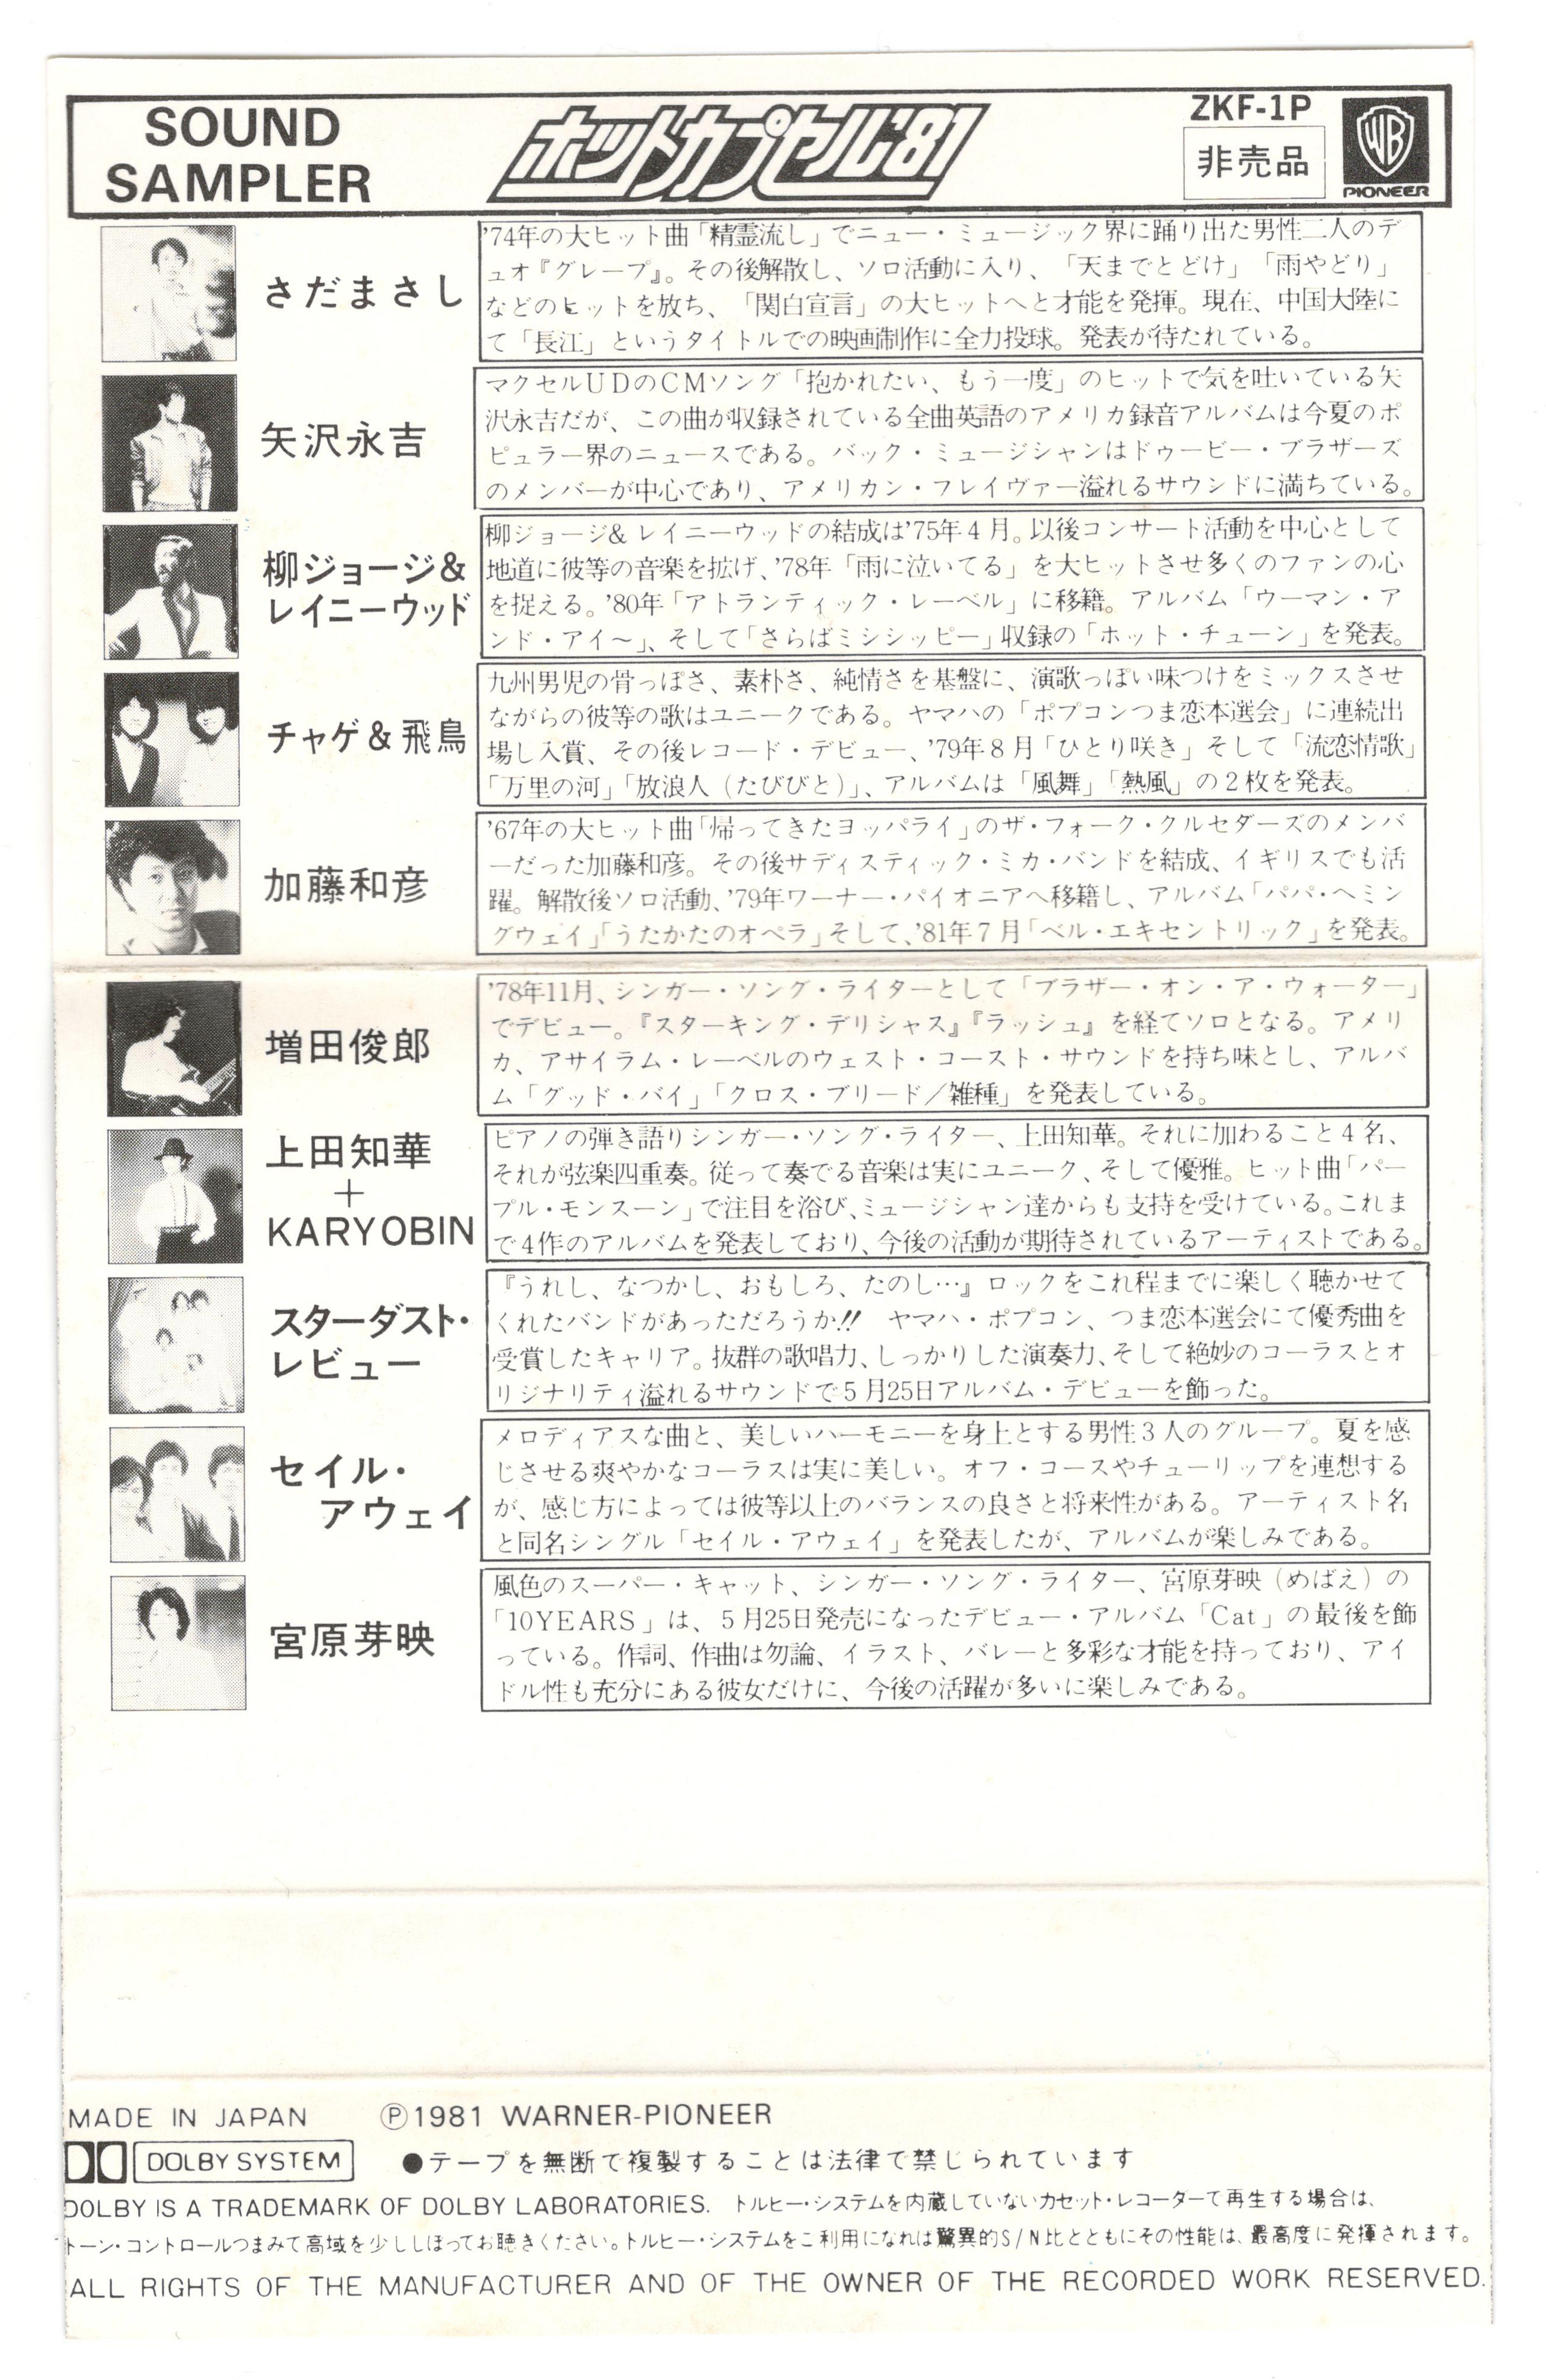 SOUND
SAMPLER
ホットカプセル'81
ZKF-1P
非売品
WB
PIONEER
さだまさし
'74年の大ヒット曲「精霊流し」でニュー・ミュージック界に踊り出た男性二人のデ
ュオ『グレープ』。その後解散し、ソロ活動に入り、「天までとどけ」「雨やどり」
などのヒットを放ち、「関白宣言」の大ヒットへと才能を発揮。現在、中国大陸に
て「長江」というタイトルでの映画制作に全力投球。発表が待たれている。
矢沢永吉
マクセルUDのCMソング「抱かれたい、もう一度」のヒットで気を吐いている矢
沢永吉だが、この曲が収録されている全曲英語のアメリカ録音アルバムは今夏のポ
ピュラー界のニュースである。バック・ミュージシャンはドゥービー・ブラザーズ
のメンバーが中心であり、アメリカン・フレイヴァー溢れるサウンドに満ちている。
柳ジョージ&
レイニーウッド
柳ジョージ&レイニーウッドの結成は'75年4月。以後コンサート活動を中心として
地道に彼等の音楽を拡げ、'78年「雨に泣いてる」を大ヒットさせ多くのファンの心
を捉える。'80年「アトランティック・レーベル」に移籍。アルバム「ウーマン・ア
ンド・アイ〜」、そして「さらばミシシッピー」収録の「ホット・チューン」を発表。
チャゲ&飛鳥
九州男児の骨っぽさ、素朴さ、純情さを基盤に、演歌っぽい味つけをミックスさせ
ながらの彼等の歌はユニークである。ヤマハの「ポプコンつま恋本選会」に連続出
場し入賞、その後レコード・デビュー、'79年8月「ひとり咲き」そして「流恋情歌」
「万里の河」「放浪人（たびびと）」、アルバムは「風舞」「熱風」の2枚を発表。
加藤和彦
'67年の大ヒット曲「帰ってきたヨッパライ」のザ・フォーク・クルセダーズのメンバ
ーだった加藤和彦。その後サディスティック・ミカ・バンドを結成、イギリスでも活
躍。解散後ソロ活動、'79年ワーナー・パイオニアへ移籍し、アルバム「パパ・ヘミン
グウェイ」「うたかたのオペラ」そして、'81年7月「ベル・エキセントリック」を発表。
増田俊郎
'78年11月、シンガー・ソング・ライターとして「ブラザー・オン・ア・ウォーター」
でデビュー。『スターキング・デリシャス』『ラッシュ』を経てソロとなる。アメリ
カ、アサイラム・レーベルのウェスト・コースト・サウンドを持ち味とし、アルバ
ム「グッド・バイ」「クロス・ブリード／雑種」を発表している。
上田知華
+
KARYOBIN
ピアノの弾き語りシンガー・ソング・ライター、上田知華。それに加わること4名、
それが弦楽四重奏。従って奏でる音楽は実にユニーク、そして優雅。ヒット曲「パー
プル・モンスーン」で注目を浴び、ミュージシャン達からも支持を受けている。これま
で4作のアルバムを発表しており、今後の活動が期待されているアーティストである。
スターダスト・
レビュー
『うれし、なつかし、おもしろ、たのし…』ロックをこれ程までに楽しく聴かせて
くれたバンドがあっただろうか!! ヤマハ・ポプコン、つま恋本選会にて優秀曲を
受賞したキャリア。抜群の歌唱力、しっかりした演奏力、そして絶妙のコーラスとオ
リジナリティ溢れるサウンドで5月25日アルバム・デビューを飾った。
セイル・
アウェイ
メロディアスな曲と、美しいハーモニーを身上とする男性3人のグループ。夏を感
じさせる爽やかなコーラスは実に美しい。オフ・コースやチューリップを連想する
が、感じ方によっては彼等以上のバランスの良さと将来性がある。アーティスト名
と同名シングル「セイル・アウェイ」を発表したが、アルバムが楽しみである。
宮原芽映
風色のスーパー・キャット、シンガー・ソング・ライター、宮原芽映（めばえ）の
「10YEARS」は、5月25日発売になったデビュー・アルバム「Cat」の最後を飾
っている。作詞、作曲は勿論、イラスト、バレーと多彩な才能を持っており、アイ
ドル性も充分にある彼女だけに、今後の活躍が多いに楽しみである。
MADE IN JAPAN Ⓟ1981 WARNER-PIONEER
DOLBY SYSTEM ●テープを無断で複製することは法律で禁じられています
DOLBY IS A TRADEMARK OF DOLBY LABORATORIES. トルヒー・システムを内蔵していないカセット・レコーターて再生する場合は、
トーン・コントロールつまみて高域を少ししほってお聴きくたさい。トルヒー・システムをこ利用になれは驚異的S/N比とともにその性能は、最高度に発揮されます。
ALL RIGHTS OF THE MANUFACTURER AND OF THE OWNER OF THE RECORDED WORK RESERVED.